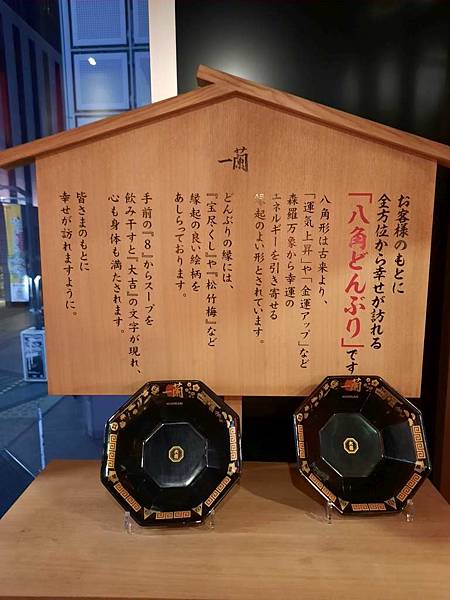 一蘭
お客様のもとに
全方位から幸せが訪れる
「八角どんぶり」です
八角形は古来より、
「運気上昇」や「金運アップ」など
森羅万象から幸運の
エネルギーを引き寄せる
起のよい形とされています。
どんぶりの縁には、
『宝尽くし』や『松竹梅』など
縁起の良い絵柄を
あしらっております。
手前の『8』からスープを
飲み干すと『大吉』の文字が現れ、
心も身体も満たされます。
皆さまのもとに
幸せが訪れますように。
一蘭
一蘭
大吉
大吉